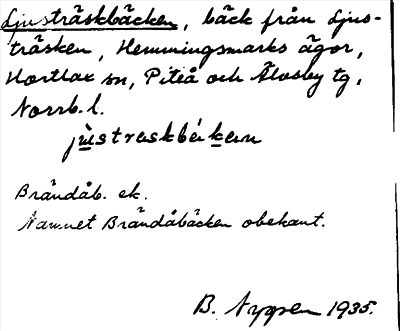 Ljusträskbäcken, bäck från Ljus-
träsken, Hemmingsmarks ägor,
Hortlax sn, Piteå och Älvsby tg,
Norrb. l.
jùstraskbäkan
Brändåb. ek.
Namnet Brändåbäcken obekant.
B. Nygren 1935.